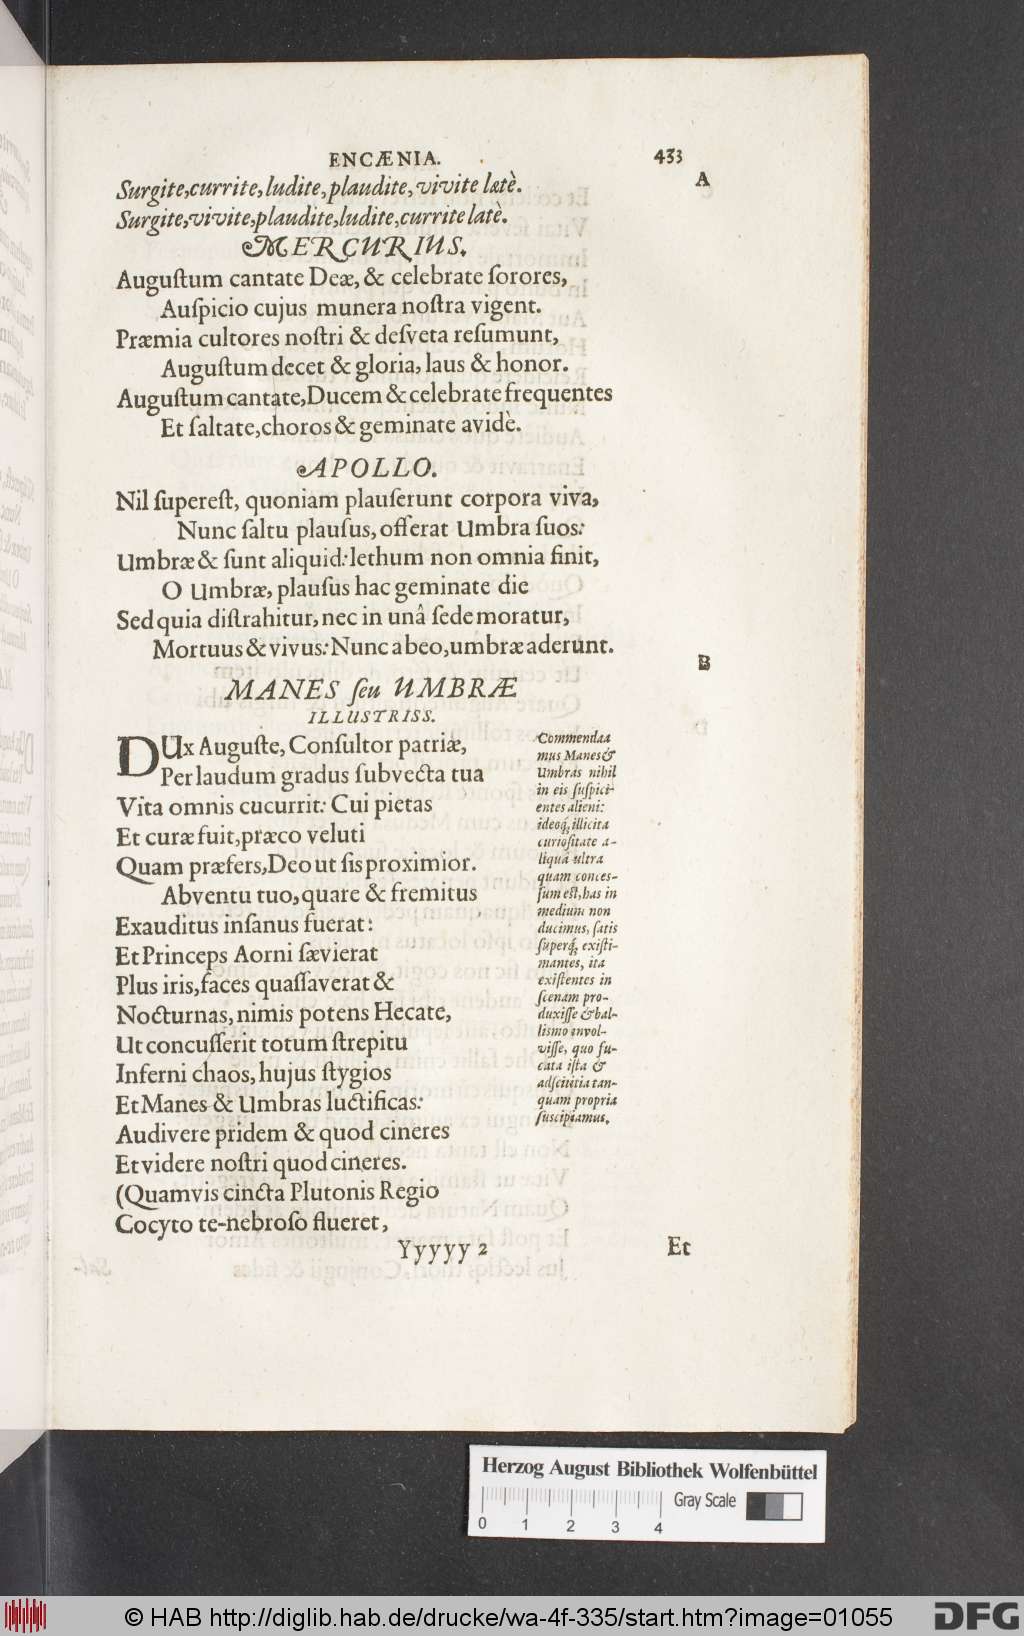 ENCÆNIA. 433
A
Surgite,currite,ludite,plaudite,vivite lætè.
Surgite,vivite,plaudite,ludite,currite latè.
MERCURIUS.
Auguſtum cantate Deæ, & celebrate ſorores,
Auſpicio cujus munera noſtra vigent.
Præmia cultores noſtri & deſveta reſumunt,
Auguſtum decet & gloria, laus & honor.
Auguſtum cantate,Ducem & celebrate frequentes
Et ſaltate,choros & geminate avidè.
APOLLO.
Nil ſupereſt, quoniam plauſerunt corpora viva,
Nunc ſaltu plauſus, offerat Umbra ſuos:
Umbræ & ſunt aliquid: lethum non omnia finit,
O Umbræ, plauſus hac geminate die
Sed quia diſtrahitur, nec in unâ ſede moratur,
Mortuus & vivus: Nunc abeo, umbræ aderunt.
B
MANES ſeu UMBRÆ
ILLUSTRISS.
DUx Auguſte, Conſultor patriæ,
Per laudum gradus ſubvecta tua
Vita omnis cucurrit: Cui pietas
Et curæ fuit, præco veluti
Quam præfers, Deo ut ſis proximior.
Abventu tuo, quare & fremitus
Exauditus inſanus fuerat:
Et Princeps Aorni ſævierat
Plus iris, faces quaſſaverat &
Nocturnas, nimis potens Hecate,
Ut concuſſerit totum ſtrepitu
Inferni chaos, hujus ſtygios
Et Manes & Umbras luctificas:
Audivere pridem & quod cineres
Et videre noſtri quod cineres.
(Quamvis cincta Plutonis Regio
Cocyto te-nebroſo flueret,
Commendaa
mus Manes &
Umbras nihil
in eis ſuſpici-
entes alieni:
ideoq́, illicita
curioſitate a-
liquâ ultra
quam conceſ-
ſum eſt, has in
medium non
ducimus, ſatis
ſuperq́, exiſti-
mantes, ita
exiſtentes in
ſcenam pro-
duxiſſe & bal-
liſmo invol-
viſſe, quo fu-
cata iſta &
adſcititia tan-
quam propria
ſuscipiamus.
Yyyyy 2 Et
Herzog August Bibliothek Wolfenbüttel
Gray Scale
0 1 2 3 4
© HAB http://diglib.hab.de/drucke/wa-4f-335/start.htm?image=01055
DFG